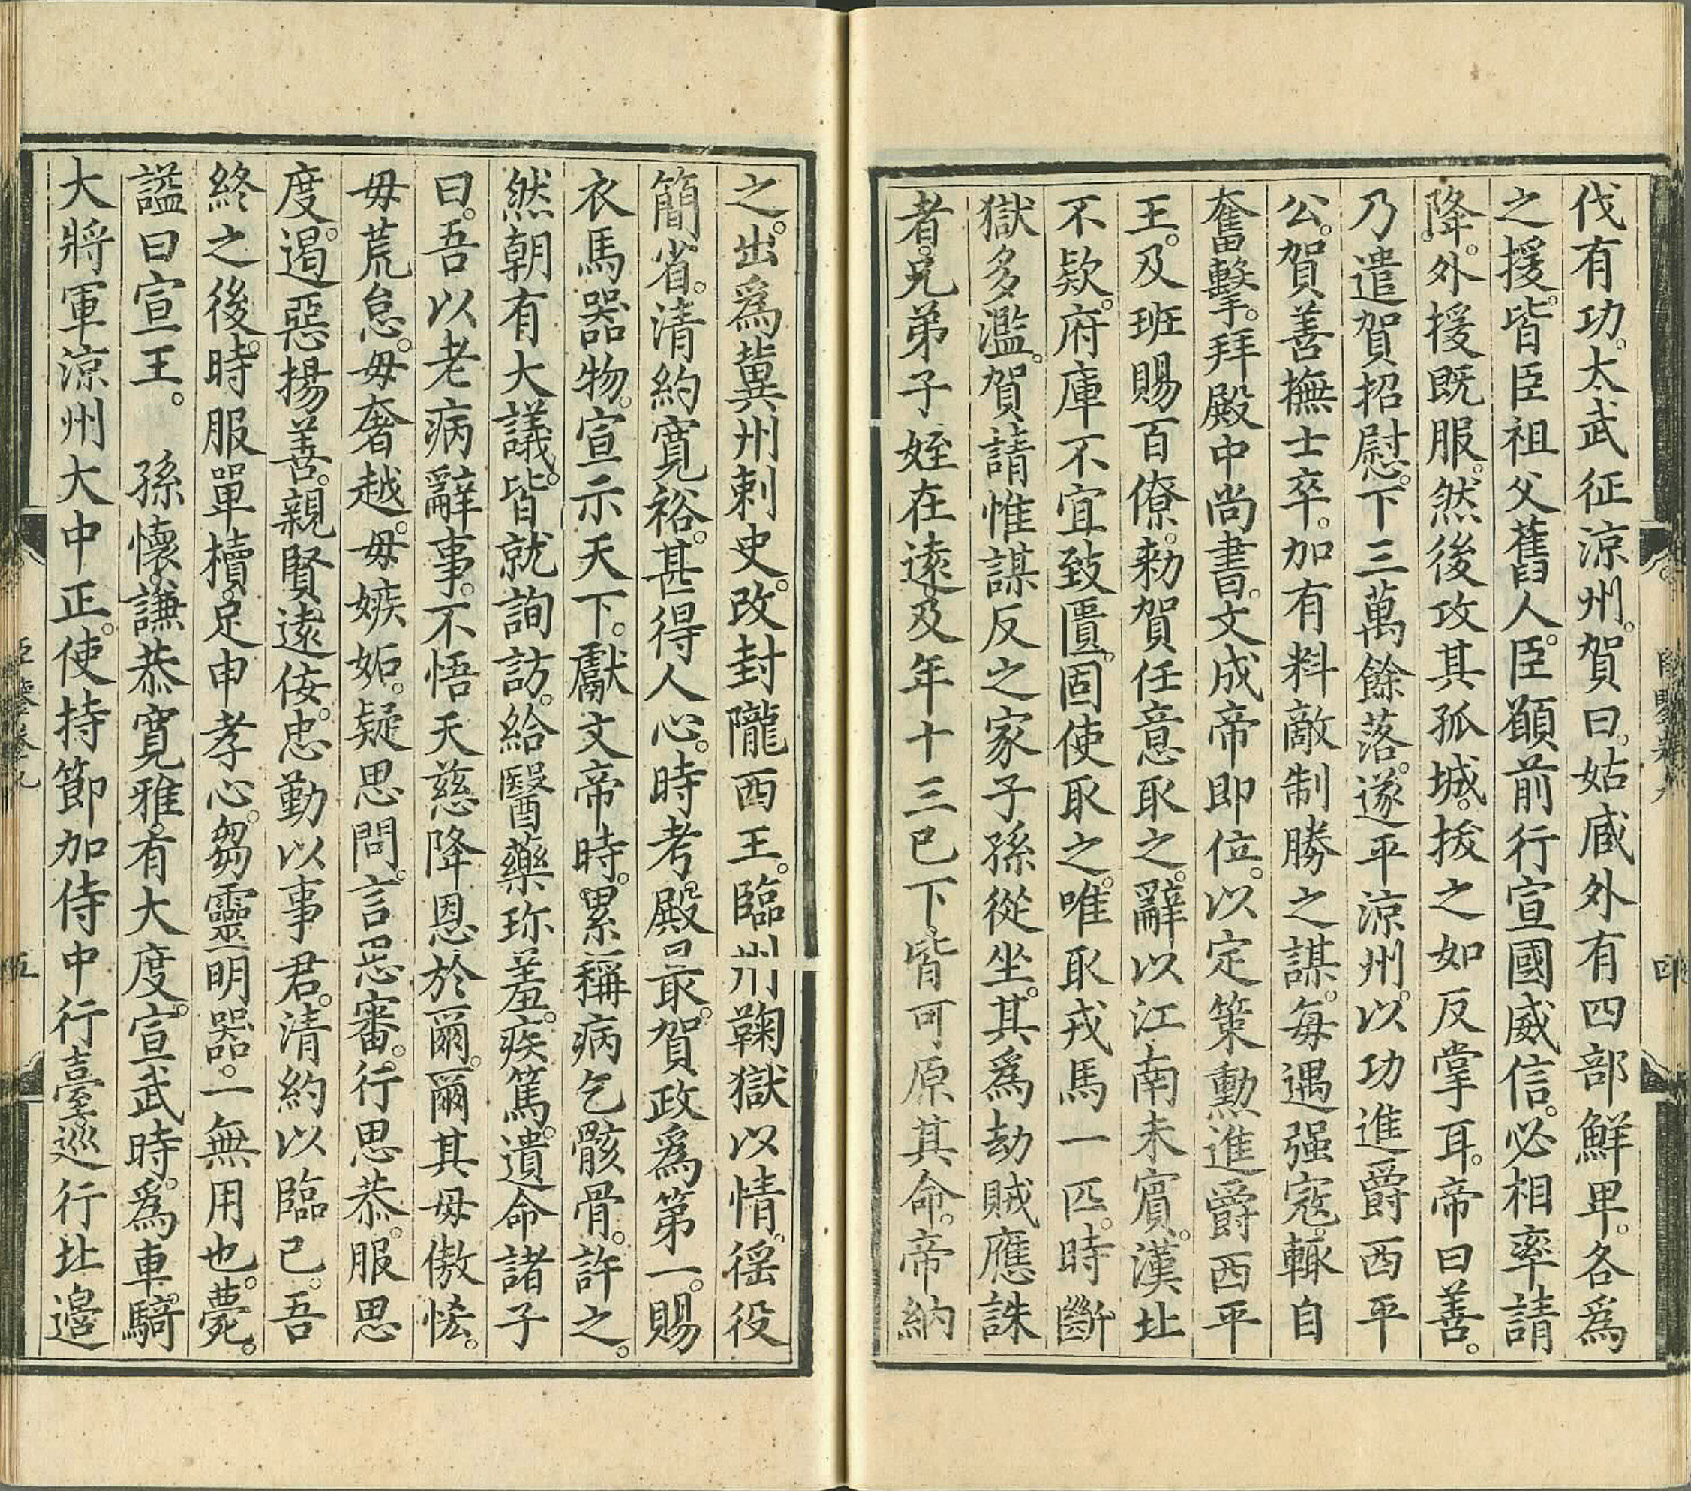 伐有功。太武征涼州。賀曰。姑臧外有四部鮮卑。各爲
之援。皆臣祖父舊人。臣願前行宣國威信。必相率請
降。外援既服。然後攻其孤城。拔之如反掌耳。帝曰善。
乃遣賀招慰。下三萬餘落。遂平涼州。以功進爵西平
公。賀善撫士卒。加有料敵制勝之謀。每遇强寇。輙自
奮擊。拜殿中尚書。文成帝即位。以定策勳進爵西平
王。及班賜百僚。勑賀任意取之。辭以江南未賓。漢北
不欵。府庫不宜致匱。固使取之。唯取戎馬一匹。時斷
獄多濫。賀請惟謀反之家子孫從坐。其爲劫賊應誅
者。兄弟子姪在遠。及年十三已下。皆可原其命。帝納
之。出爲冀州刺史。改封隴西王。臨州鞠獄以情。徭役
簡省。清約寬裕。甚得人心。時考殿最。賀政爲第一。賜
衣馬器物。宣示天下。獻文帝時。累稱病乞骸骨。許之。
然朝有大議。皆就詢訪。給醫藥珍羞。疾篤。遺命諸子
曰。吾以老病辭事。不悟天慈降恩於爾。爾其毋傲恡。
毋荒怠。毋奢越。毋嫉妬。疑思問。言思審。行思恭。服思
度。遏惡揚善。親賢遠佞。忠勤以事君。清約以臨己。吾
終之後。時服單櫝。足申孝心。芻靈明器。一無用也。薨。
謚曰宣王。 孫懷。謙恭寬雅。有大度。宣武時。爲車騎
大將軍涼州大中正。使持節加侍中行臺巡行北邊
五